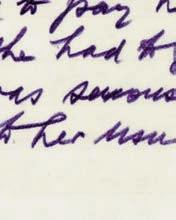 to pay
she had to
was serious
to her usu